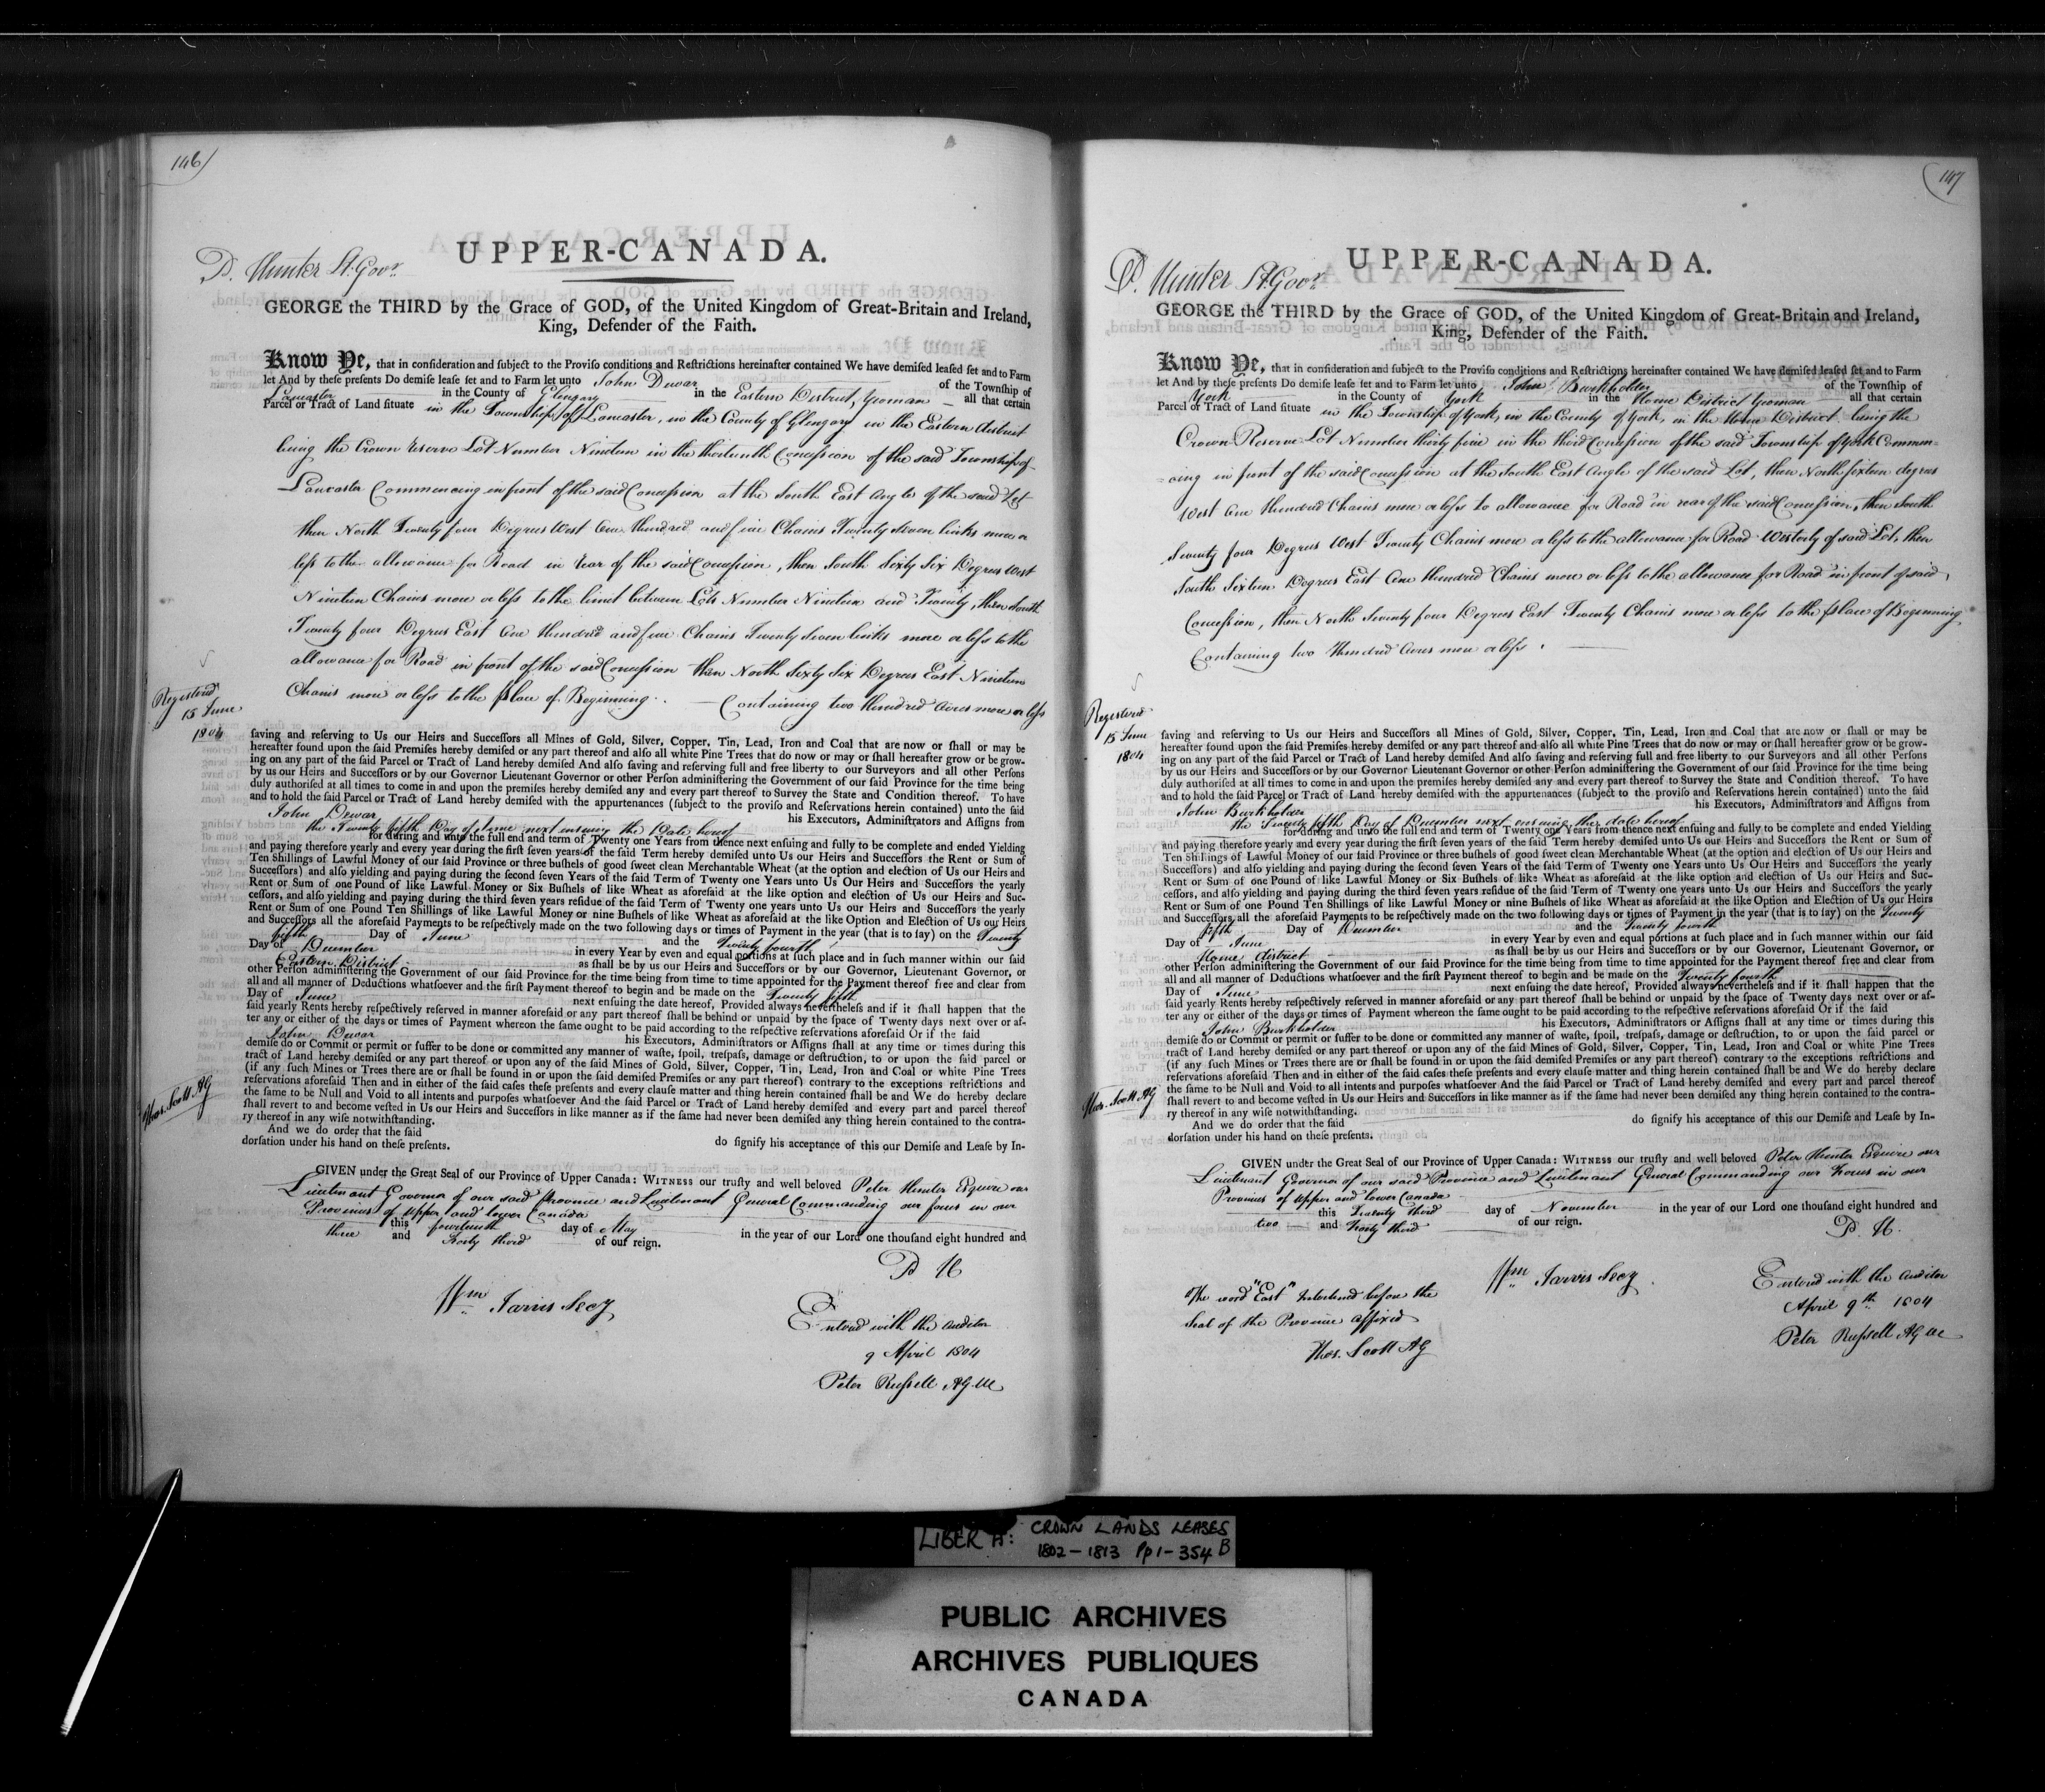 146)
UPPER-CANADA.
P. Hunter Lt. Govr.
GEORGE the THIRD by the Grace of GOD, of the United Kingdom of Great-Britain and Ireland,
King, Defender of the Faith.
Know Ye, that in consideration and subject to the Proviso conditions and Restrictions hereinafter contained We have demised leased set and to Farm
let And by these presents Do demise lease set and to Farm let unto John Dewar of the Township of
Lancaster in the County of Glengary in the Eastern District, Yeoman all that certain
Parcel or Tract of Land situate in the Township of Lancaster, in the County of Glengary in the Eastern district
being the Crown Reserve Lot Number Nineteen in the thirteenth Concession of the said Township of
Lancaster Commencing in front of the said Concession at the South East Angle of the said Lot
then North Twenty four Degrees West One Hundred and five Chains Twenty Seven links more or
less to the allowance for Road in Rear of the said Concession, then South Sixty Six Degrees West
Nineteen Chains more or less to the limit between Lots Number Nineteen and Twenty, then South
Twenty four Degrees East One Hundred and five Chains Twenty Seven links more or less to the
allowance for Road in front of the said Concession then North Sixty Six Degrees East Nineteen
Chains more or less to the place of Beginning. Containing two Hundred Acres more or less
Registered
15 June
1804
saving and reserving to Us our Heirs and Successors all Mines of Gold, Silver, Copper, Tin, Lead, Iron and Coal that are now or shall or may be
hereafter found upon the said Premises hereby demised or any part thereof and also all white Pine Trees that do now or may or shall hereafter grow or be grow-
ing on any part of the said Parcel or Tract of Land hereby demised And also saving and reserving full and free liberty to our Surveyors and all other Persons
by us our Heirs and Successors or by our Governor Lieutenant Governor or other Person administering the Government of our said Province for the time being
duly authorised at all times to come in and upon the premises hereby demised any and every part thereof to Survey the State and Condition thereof. To have
and to hold the said Parcel or Tract of Land hereby demised with the appurtenances (subject to the proviso and Reservations herein contained) unto the said
John Dewar his Executors, Administrators and Assigns from
the Twenty fifth Day of June next ensuing the Date hereof
for during and unto the full end and term of Twenty one Years from thence next ensuing and fully to be complete and ended Yielding
and paying therefore yearly and every year during the first seven years of the said Term hereby demised unto Us our Heirs and Successors the Rent or Sum of
Ten Shillings of Lawful Money of our said Province or three bushels of good sweet clean Merchantable Wheat (at the option and election of Us our Heirs and
Successors) and also yielding and paying during the second seven Years of the said Term of Twenty one Years unto Us Our Heirs and Successors the yearly
Rent or Sum of one Pound of like Lawful Money or Six Bushels of like Wheat as aforesaid at the like option and election of Us our Heirs and Suc-
cessors, and also yielding and paying during the third seven years residue of the said Term of Twenty one years unto Us our Heirs and Successors the yearly
Rent or Sum of one Pound Ten Shillings of like Lawful Money or nine Bushels of like Wheat as aforesaid at the like Option and Election of Us our Heirs
and Successors all the aforesaid Payments to be respectively made on the two following days or times of Payment in the year (that is to say) on the Twenty
fifth Day of June and the Twenty fourth
Day of December in every Year by even and equal portions at such place and in such manner within our said
Eastern District as shall be by us our Heirs and Successors or by our Governor, Lieutenant Governor, or
other Person administering the Government of our said Province for the time being from time to time appointed for the Payment thereof free and clear from
all and all manner of Deductions whatsoever and the first Payment thereof to begin and be made on the Twenty fifth
Day of June next ensuing the date hereof, Provided always nevertheless and if it shall happen that the
said yearly Rents hereby respectively reserved in manner aforesaid or any part thereof shall be behind or unpaid by the space of Twenty days next over or af-
ter any or either of the days or times of Payment whereon the same ought to be paid according to the respective reservations aforesaid Or if the said
John Dewar his Executors, Administrators or Assigns shall at any time or times during this
demise do or Commit or permit or suffer to be done or committed any manner of waste, spoil, trespass, damage or destruction, to or upon the said parcel or
tract of Land hereby demised or any part thereof or upon any of the said Mines of Gold, Silver, Copper, Tin, Lead, Iron and Coal or white Pine Trees
(if any such Mines or Trees there are or shall be found in or upon the said demised Premises or any part thereof) contrary to the exceptions restrictions and
reservations aforesaid Then and in either of the said cases these presents and every clause matter and thing herein contained shall be and We do hereby declare
the same to be Null and Void to all intents and purposes whatsoever And the said Parcel or Tract of Land hereby demised and every part and parcel thereof
shall revert to and become vested in Us our Heirs and Successors in like manner as if the same had never been demised any thing herein contained to the contra-
ry thereof in any wise notwithstanding.
Thos. Scott AG
And we do order that the said do signify his acceptance of this our Demise and Lease by In-
dorsation under his hand on these presents.
GIVEN under the Great Seal of our Province of Upper Canada: WITNESS our trusty and well beloved Peter Hunter Esquire our
Lieutenant Governor of our said Province and Lieutenant General Commanding our forces in our
Provinces of Upper and lower Canada
this fourteenth day of May in the year of our Lord one thousand eight hundred and
three and Forty third of our reign.
P H
Wm Jarvis Secy
Entered with the Auditor
9 April 1804
Peter Russell AG UC
147
UPPER-CANADA.
P. Hunter Lt. Govr.
GEORGE the THIRD by the Grace of GOD, of the United Kingdom of Great-Britain and Ireland,
King, Defender of the Faith.
Know Ye, that in consideration and subject to the Proviso conditions and Restrictions hereinafter contained We have demised leased set and to Farm
let And by these presents Do demise lease set and to Farm let unto John Burkholder of the Township of
York in the County of York in the Home District Yeoman all that certain
Parcel or Tract of Land situate in the Township of York, in the County of York, in the Home District being the
Crown Reserve Lot Number thirty five in the third Concession of the said Township of York Commen=
=cing in front of the said Concession at the South East Angle of the said Lot, then North Sixteen degrees
West One Hundred Chains more or less to allowance for Road in rear of the said Concession, then South
Seventy four Degrees West Twenty Chains more or less to the allowance for Road Westerly of said Lot, then
South Sixteen Degrees East One Hundred Chains more or less to the allowance for Road in front of said
Concession, then North Seventy four Degrees East Twenty Chains more or less to the place of Beginning
Containing two Hundred Acres more or less.
Registered
15 June
1804
saving and reserving to Us our Heirs and Successors all Mines of Gold, Silver, Copper, Tin, Lead, Iron and Coal that are now or shall or may be
hereafter found upon the said Premises hereby demised or any part thereof and also all white Pine Trees that do now or may or shall hereafter grow or be grow-
ing on any part of the said Parcel or Tract of Land hereby demised And also saving and reserving full and free liberty to our Surveyors and all other Persons
by us our Heirs and Successors or by our Governor Lieutenant Governor or other Person administering the Government of our said Province for the time being
duly authorised at all times to come in and upon the premises hereby demised any and every part thereof to Survey the State and Condition thereof. To have
and to hold the said Parcel or Tract of Land hereby demised with the appurtenances (subject to the proviso and Reservations herein contained) unto the said
John Burkholder his Executors, Administrators and Assigns from
the Twenty fifth Day of December next ensuing the date hereof
for during and unto the full end and term of Twenty one Years from thence next ensuing and fully to be complete and ended Yielding
and paying therefore yearly and every year during the first seven years of the said Term hereby demised unto Us our Heirs and Successors the Rent or Sum of
Ten Shillings of Lawful Money of our said Province or three bushels of good sweet clean Merchantable Wheat (at the option and election of Us our Heirs and
Successors) and also yielding and paying during the second seven Years of the said Term of Twenty one Years unto Us Our Heirs and Successors the yearly
Rent or Sum of one Pound of like Lawful Money or Six Bushels of like Wheat as aforesaid at the like option and election of Us our Heirs and Suc-
cessors, and also yielding and paying during the third seven years residue of the said Term of Twenty one years unto Us our Heirs and Successors the yearly
Rent or Sum of one Pound Ten Shillings of like Lawful Money or nine Bushels of like Wheat as aforesaid at the like Option and Election of Us our Heirs
and Successors all the aforesaid Payments to be respectively made on the two following days or times of Payment in the year (that is to say) on the Twenty
fifth Day of December and the Twenty fourth
Day of June in every Year by even and equal portions at such place and in such manner within our said
Home district as shall be by us our Heirs and Successors or by our Governor, Lieutenant Governor, or
other Person administering the Government of our said Province for the time being from time to time appointed for the Payment thereof free and clear from
all and all manner of Deductions whatsoever and the first Payment thereof to begin and be made on the Twenty fourth
Day of June next ensuing the date hereof, Provided always nevertheless and if it shall happen that the
said yearly Rents hereby respectively reserved in manner aforesaid or any part thereof shall be behind or unpaid by the space of Twenty days next over or af-
ter any or either of the days or times of Payment whereon the same ought to be paid according to the respective reservations aforesaid Or if the said
John Burkholder his Executors, Administrators or Assigns shall at any time or times during this
demise do or Commit or permit or suffer to be done or committed any manner of waste, spoil, trespass, damage or destruction, to or upon the said parcel or
tract of Land hereby demised or any part thereof or upon any of the said Mines of Gold, Silver, Copper, Tin, Lead, Iron and Coal or white Pine Trees
(if any such Mines or Trees there are or shall be found in or upon the said demised Premises or any part thereof) contrary to the exceptions restrictions and
reservations aforesaid Then and in either of the said cases these presents and every clause matter and thing herein contained shall be and We do hereby declare
the same to be Null and Void to all intents and purposes whatsoever And the said Parcel or Tract of Land hereby demised and every part and parcel thereof
shall revert to and become vested in Us our Heirs and Successors in like manner as if the same had never been demised any thing herein contained to the contra-
ry thereof in any wise notwithstanding.
Thos. Scott AG
And we do order that the said do signify his acceptance of this our Demise and Lease by In-
dorsation under his hand on these presents.
GIVEN under the Great Seal of our Province of Upper Canada: WITNESS our trusty and well beloved Peter Hunter Esquire our
Lieutenant Governor of our said Province and Lieutenant General Commanding our Forces in our
Provinces of Upper and lower Canada
this Twenty third day of November in the year of our Lord one thousand eight hundred and
two and Forty third of our reign.
P. H.
Wm Jarvis Secy
The word "East" Interlined before the
Seal of the Province affixed
Thos. Scott AG
Entered with the Auditor
April 9th 1804
Peter Russell AG UC
LIBER A: CROWN LANDS LEASES
1802-1813 Pp 1-354 B
PUBLIC ARCHIVES
ARCHIVES PUBLIQUES
CANADA